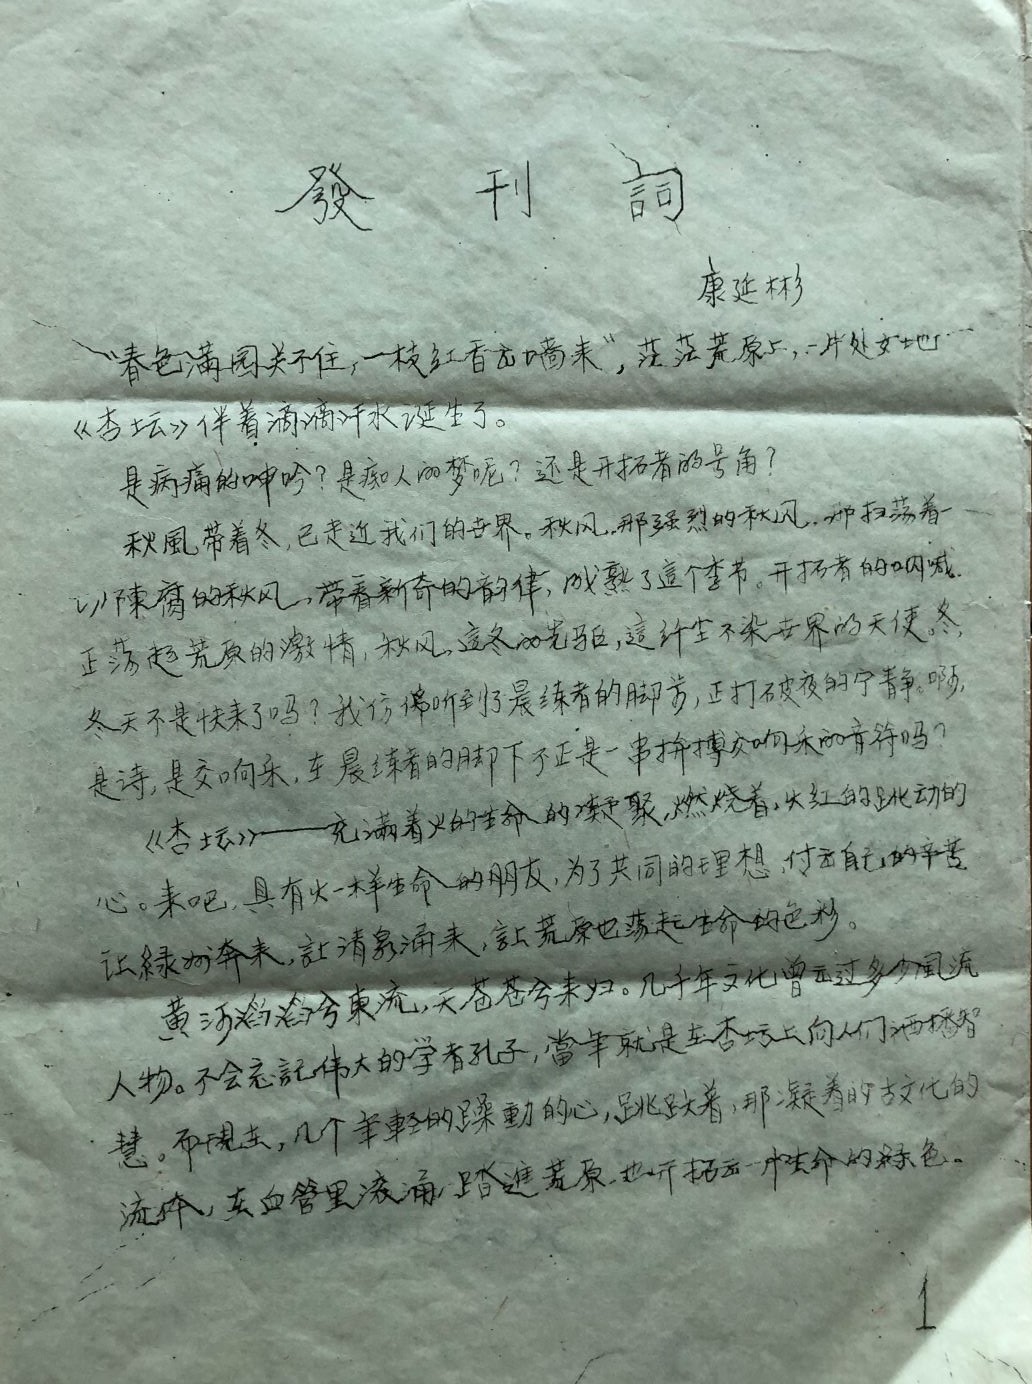 發刊詞
康延彬
“春色满园关不住,一枝红香出墙来”,茫茫荒原上,一片处女地
《杏坛》伴着滴滴汗水诞生了。
是病痛的呻吟?是痴人的梦呢?还是开拓者的号角?
秋風带着冬,已走近我们的世界。秋风,那强烈的秋风,那扫荡着一
切陳腐的秋风,带着新奇的韵律,成熟了這个季节。开拓者的呐喊,
正荡起荒原的激情,秋风,這冬的先驱,這纤尘不染世界的天使。冬,
冬天不是快来了吗?我仿佛听到了晨练者的脚步,正打破夜的宁静。啊,
是诗,是交响乐,在晨练者的脚下不正是一串拚搏交响乐的音符吗?
《杏坛》——充满着火的生命的凝聚,燃烧着,火红的跳动的
心。来吧,具有火一样生命的朋友,为了共同的理想,付出自己的辛苦
让緑州奔来,註清泉涌来,註荒原也荡起生命的色彩。
黄河滔滔兮東流,天苍苍兮来归。几千年文化曾出过多少風流
人物。不会忘記伟大的学者孔子,當年就是在杏坛上向人们洒播智
慧。而現在,几个年輕的躁動的心,跳跃着,那凝着的古文化的
流体,在血管里滚涌,踏進荒原,也开拓出一片生命的绿色。
1